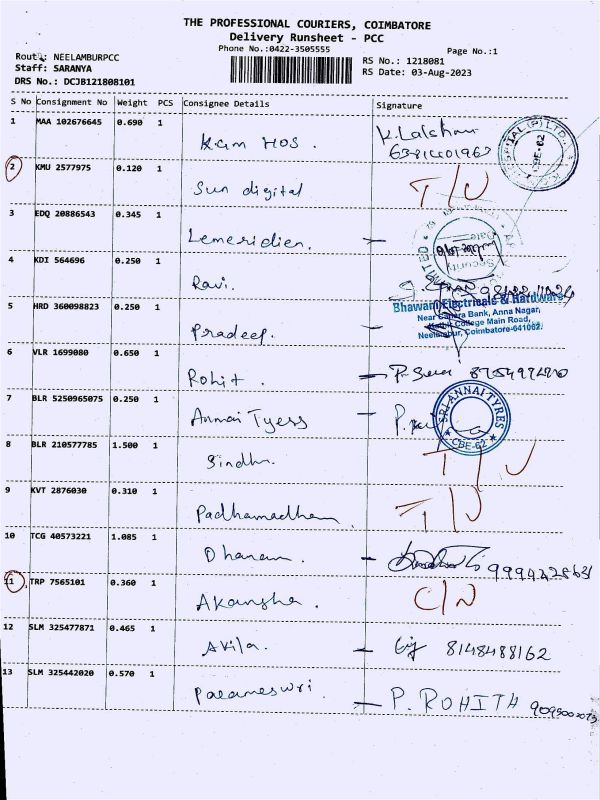 THE PROFESSIONAL COURIERS, COIMBATORE
Delivery Runsheet - PCC
Phone No.:0422-3505555
Page No.:1
Route: NEELAMBURPCC
Staff: SARANYA
DRS No.: DCJB121808101
RS No.: 1218081
RS Date: 03-Aug-2023
S No Consignment No Weight PCS Consignee Details Signature
1 MAA 102676645 0.690 1
Kam Hos.
2 KMU 2577975 0.120 1
Sun digital T/U
3 EDQ 20886543 0.345 1
Lemeridien.
4 KDI 564696 0.250 1
Ravi.
5 HRD 360098823 0.250 1
Pradeep.
Bhawani Electricals & Hardware
Near Canara Bank, Anna Nagar,
College Main Road,
Neelambur, Coimbatore-641062.
6 VLR 1699080 0.650 1
Rohit.
7 BLR 5250965075 0.250 1
Annai Tyess
SRI ANNAI TYRES
CBE-62
8 BLR 210577785 1.500 1
Sindhu. T/U
9 KVT 2876030 0.310 1
Padhamadham T/U
10 TCG 40573221 1.085 1
Dhanam.
11 TRP 7565101 0.360 1
Akansha. C/N
12 SLM 325477871 0.465 1
Akila. 8148488162
13 SLM 325442020 0.570 1
Parameswri. P. ROHITH